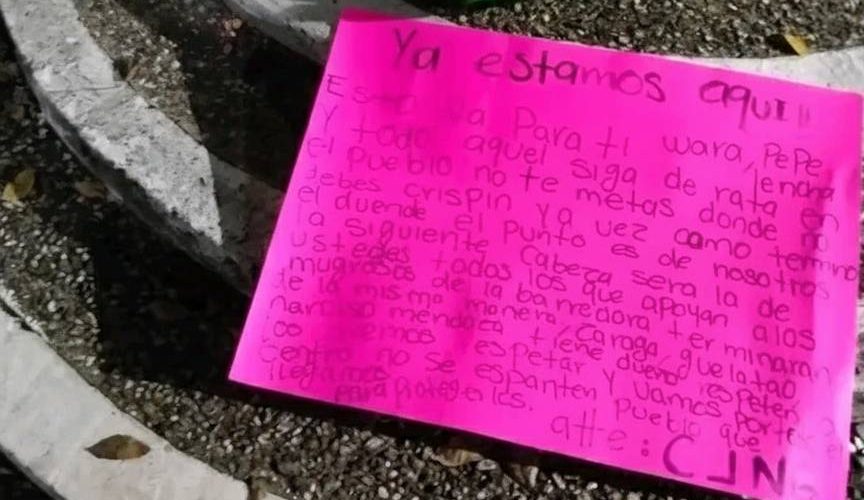 Ya estamos aqui!!
Esto va Para ti wara, PePe, lencha
Y todo aquel siga de rata en
el Pueblo no te metas donde no
debes crispin Ya vez como termino
el duende el punto es de nosotros
la siguiente cabeza sera la de
ustedes todos los que apoyan alos
mugrosos de la barredora terminaran
de la misma manera, Caraga, guelatao
narciso mendoza tiene dueño respeten
y vamos por
centro no se espanten Pueblo que
llegamos para protegerlos.
atte: CJN